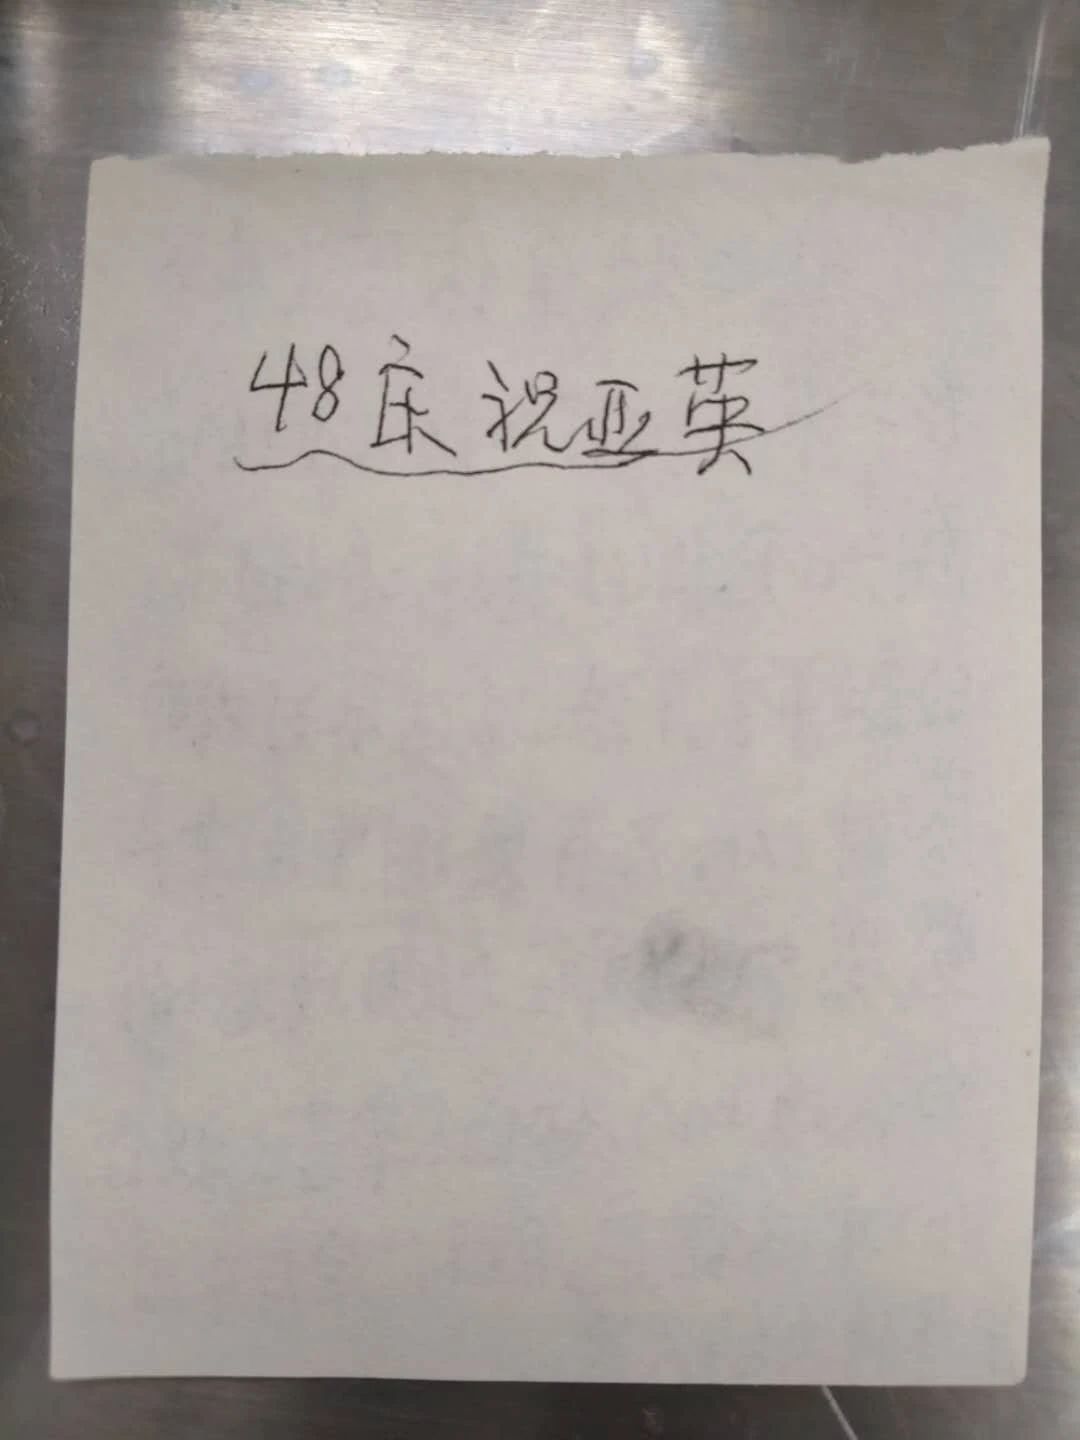 48床祝亚英